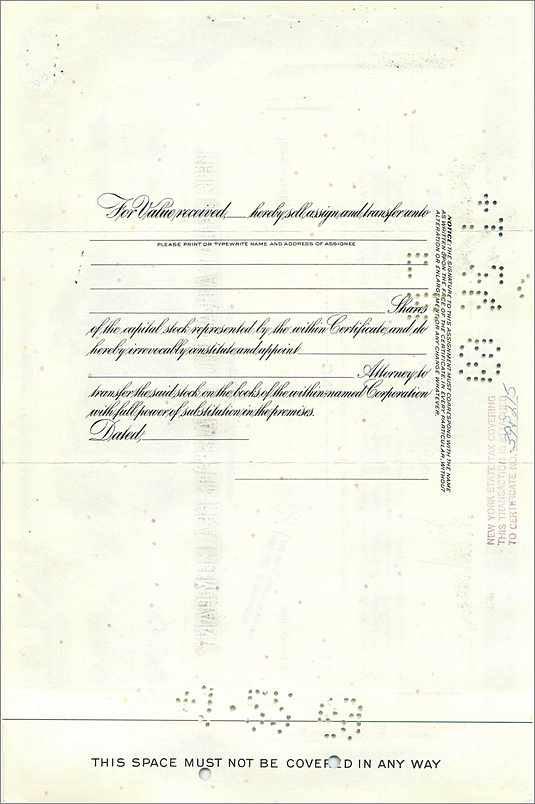 For Value received, ___ hereby sell, assign, and transfer unto
PLEASE PRINT OR TYPEWRITE NAME AND ADDRESS OF ASSIGNEE
Shares
of the capital stock represented by the within Certificate, and do
hereby irrevocably constitute and appoint
Attorney, to
transfer the said stock on the books of the within-named Corporation
with full power of substitution in the premises.
Dated,
NOTICE: THE SIGNATURE TO THIS ASSIGNMENT MUST CORRESPOND WITH THE NAME
AS WRITTEN UPON THE FACE OF THE CERTIFICATE, IN EVERY PARTICULAR, WITHOUT
ALTERATION OR ENLARGEMENT, OR ANY CHANGE WHATEVER.
NEW YORK STATE TAX COVERING
THIS TRANSACTION IS
TO CERTIFICATE NO.
THIS SPACE MUST NOT BE COVERED IN ANY WAY